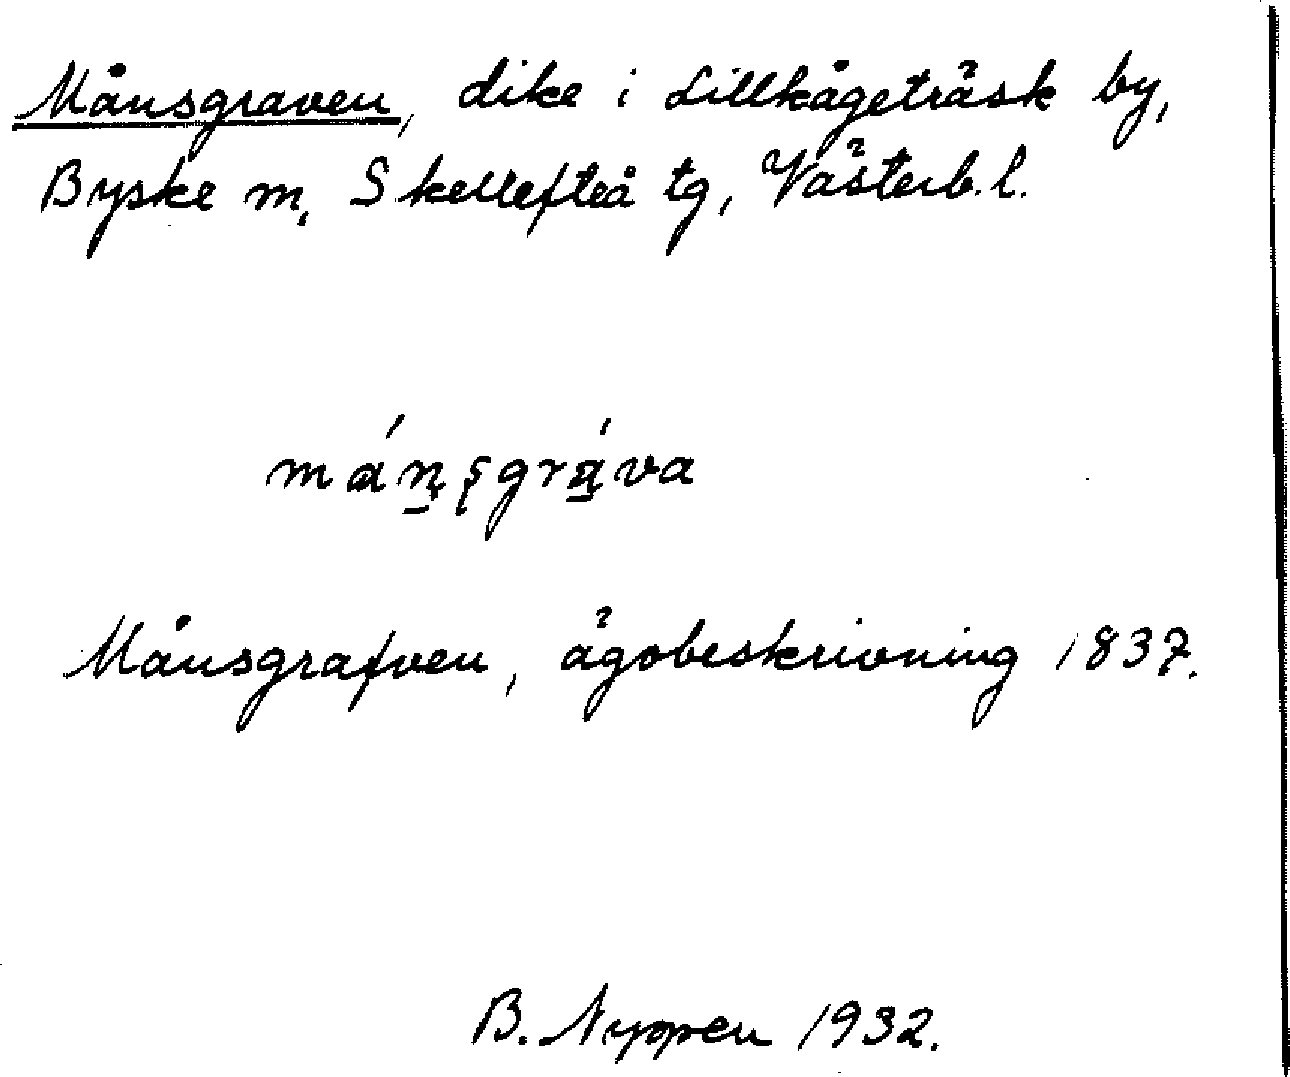 Månsgraven, dike i Lillkågeträsk by,
Byske m, Skellefteå tg, Västerb. l.
mánsgráva
Månsgrafven, ägobeskrivning 1837.
B. Nyppen 1932.